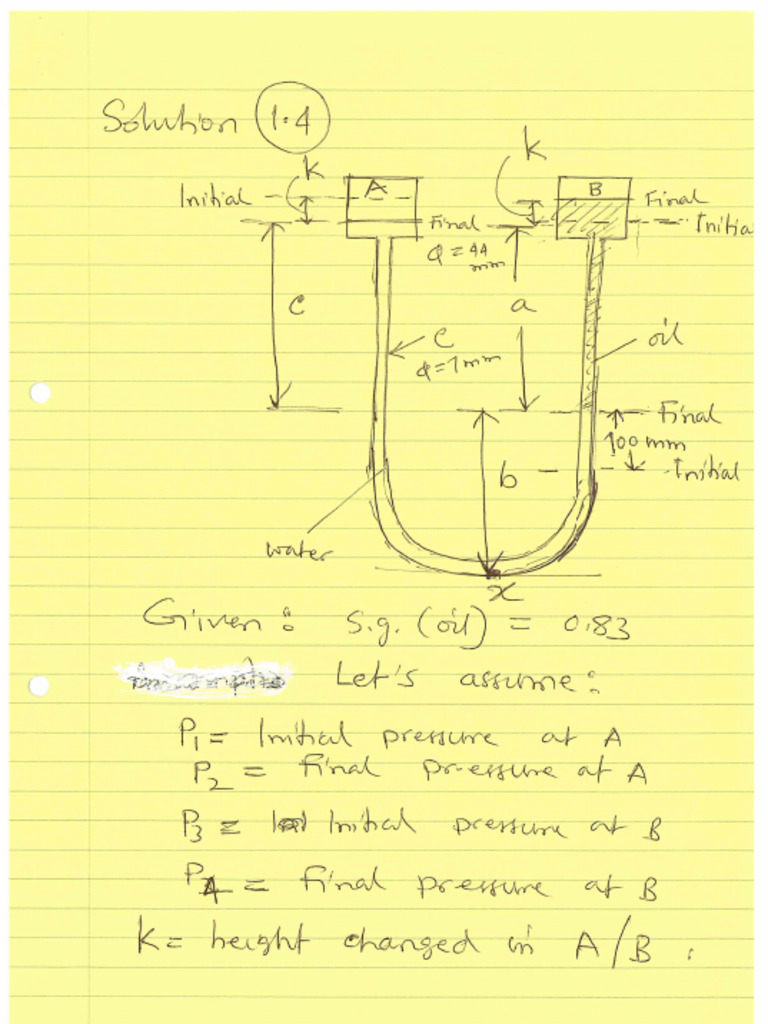 Solution 1.4
k
k
Initial
A
B
Final
Initia
Final
Q = 44
mm
c
a
C
Φ=7mm
oil
Final
100 mm
Initial
b
water
x
Given: S.g. (oil) = 0.83
Let's assume:
P1 = Initial pressure at A
P2 = Final pressure at A
P3 = Initial pressure at B
P4 = Final pressure at B
K = height changed in A/B.